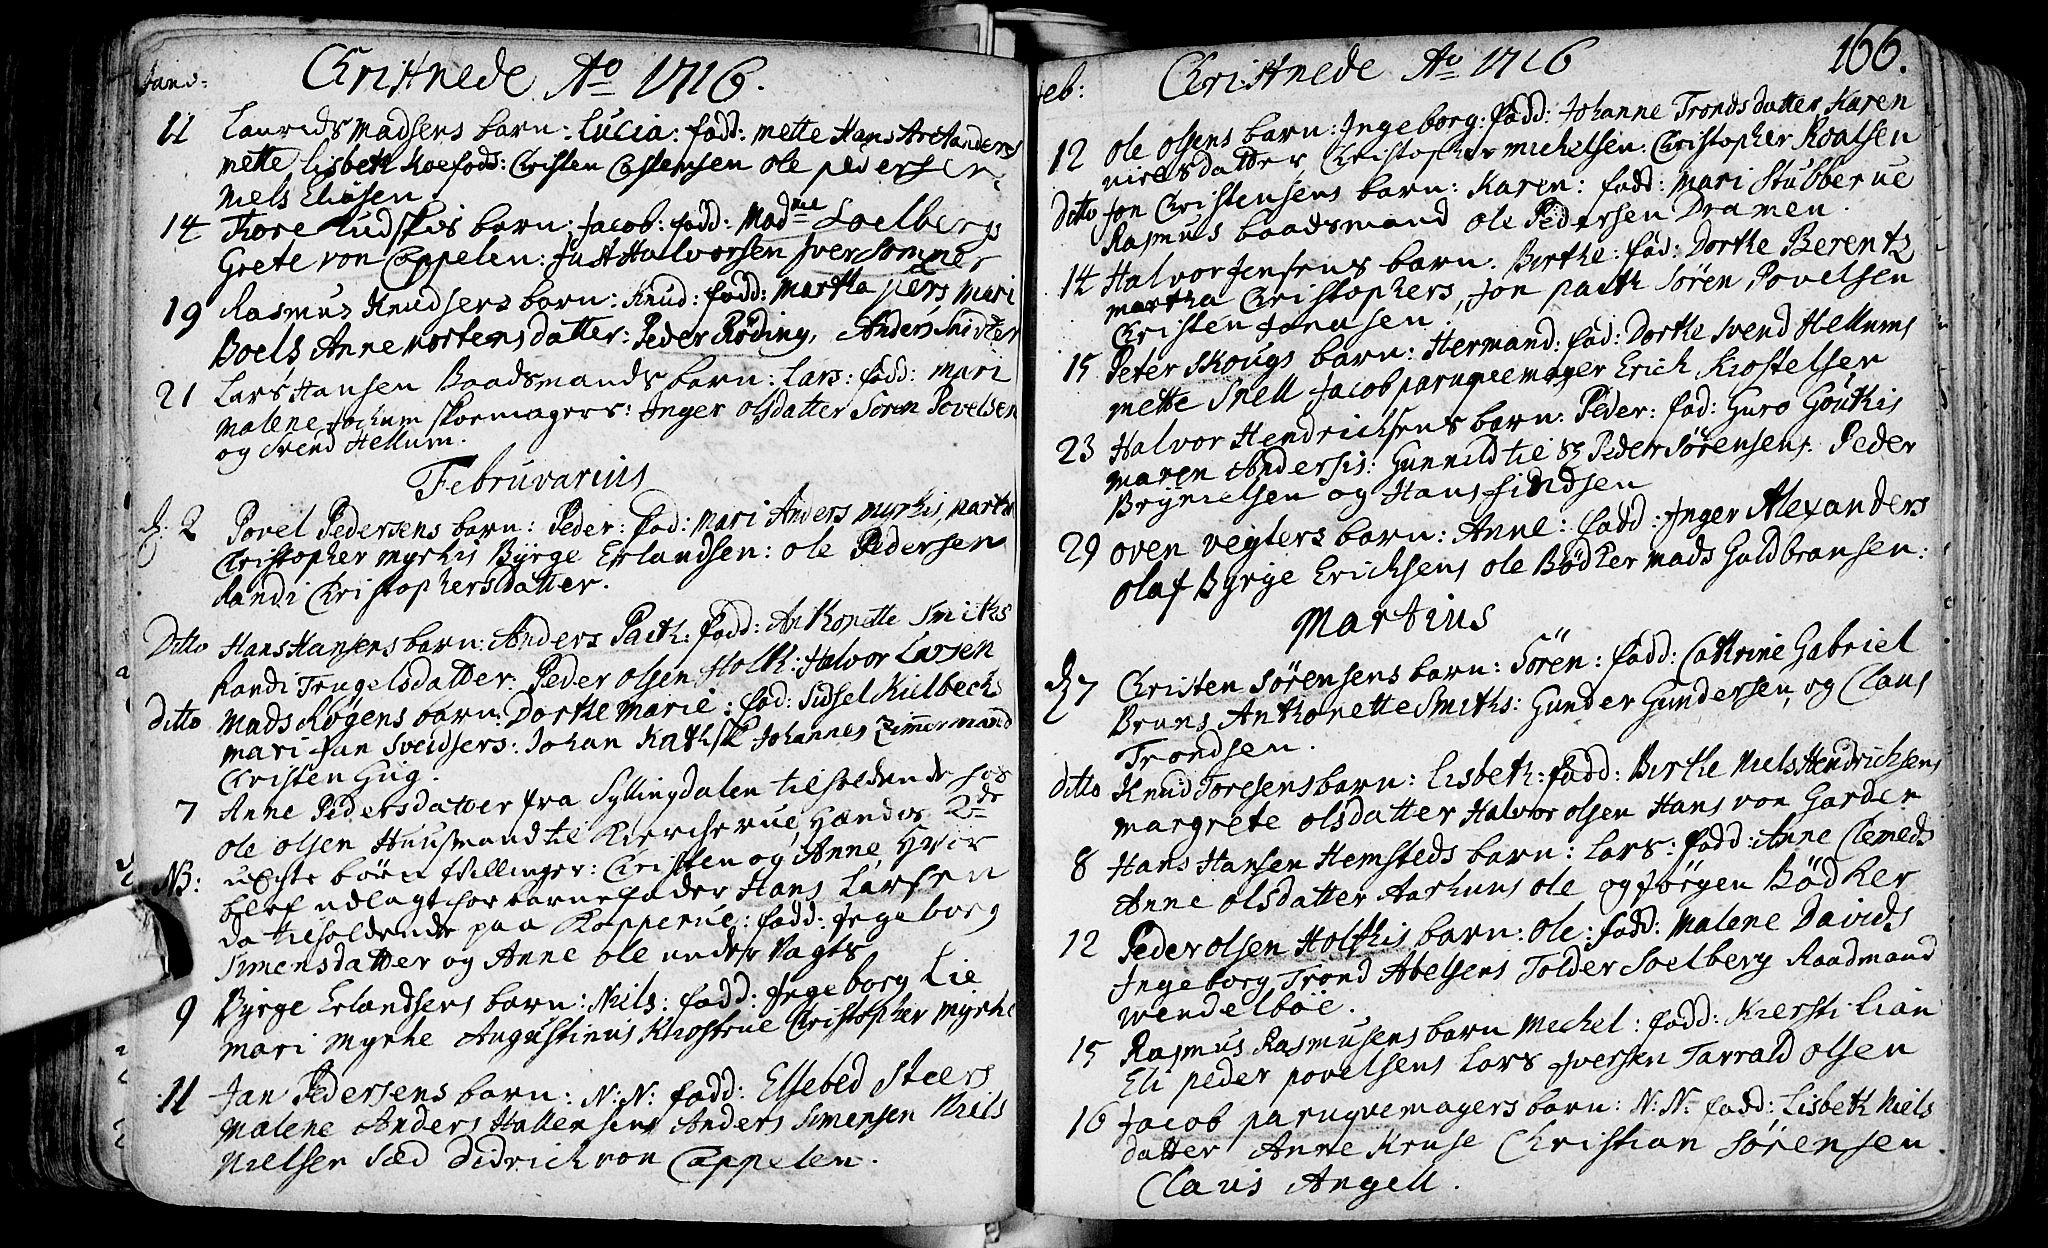 Janv:
Christnede Ao 1716.
11 Laurids Madsens barn: Lucia: fadd: Mette Hans Arctanders
Mette Lisbeth Koefods: Christen Castensen Ole Pedersen
Niels Eliasen.
14 Tore Ludskis barn: Jacob: fadd: Madme Soelberg
Grete von Cappelen: Just Halvorsen Iver Sommer
19 Rasmus Knudsens barn: Knud: fadd: Martha Pers Mari
Boels Anne Mortensdatter: Peder Röding, Anders
21 Lars Hansen Baadsmands barn: Lars: fadd: Mari
Malene Jochum Skoemagers: Inger Olsdatter Sören Povelsen
og Svend Hellum.
Februvarius
d. 2 Povel Pedersens barn: Peder: fad: Mari Anders Myrhis, Marte
Christopher Myrhis Byrge Erlandsen: Ole Pedersen
Randi Christophersdatter.
Ditto Hans Hansens barn: Anders Paith: fadd: Anthonette Smiths
Randi Trugelsdatter: Peder Olsen Holth: Halvor Larsen
Ditto Mads Røgens barn: Dorthe Marie: fad: Sidsel Kielbechs
Mari Jan Sveidsers: Johan Johannes Zimmermand
Christen Gug.
7 Anne Pedersdatter fra Syllingdalen tilholdende hos
Ole Olsen Huusmand til Kiercherue, Hendes 2de
NB: uægte börn tvillinger: Christen og Anne, Hvor
blef udlagt for barnefader Hans Larsen
da tilholdende paa Kopperue: fadd: Ingeborg
Simensdatter og Anne Ole under Vagts
9 Byrge Erlandsens barn: Niels: fadd: Ingeborg Lie
Mari Myrhe Augustinus Klosterue Christopher Myrhe
11 Jan Pedersens barn: N:N: fadd: Ellebed Steers
Malene Anders Hallensens Anders Simensen Niels
Nielsen Sæd Didrich von Cappelen.
Feb:
Christnede Ao 1716
166.
12 Ole Olsens barn: Ingeborg: fadd: Johanne Tronds datter Karen
Niresdatter, Christopher Michelsen: Christopher Roalsen
Ditto Jon Christensens barn: Karen: fadd: Mari Stubberue
Rasmus Baadsmand Ole Pedersen Dramen.
14 Halvor Jensens barn: Birthe: fad: Dorthe Berentz
Martha Christophers, Jon Paith Sören Povelsen
Christen Jonasen
15 Peter Skougs barn: Hermand: fad: Dorthe Svend Hellums
Mette Snell Jacob Paruqvemager Erich Kiostelsen
23 Halvor Hendrichsens barn: Peder: fad: Guro Göuthis
Maren Andersis: Gunnild til Peder Sörensens. Peder
Brynielsen og Hans Findsen
29 Oven Vegters barn: Anne: fadd: Inger Alexanders
Olaf Byrge Ericksens Ole Bödker Mads Guldbransen:
Martius
d 7 Christen Sørensens barn: Sören: fadd: Cathrine Gabriel
Bruns Anthonette Smiths: Gunder Gundersen, og Claus
Trondsen.
Ditto Knud Toresens barn: Lisbeth: fadd: Birthe Niels Hendrichsens
Margrete Olsdatter Halvor Olsen Hans von Garden
8 Hans Hansen Hemsteds barn: Lars: fadd: Anne Clemeds
Anne Olsdatter Aarhuus Ole og Jørgen Bødker
12 Peder Olsen Holthis barn: Ole: fadd: Malene Davids
Ingeborg Trond Abelsens Tolder Soelberg Raadmand
Wendelboe.
15 Rasmus Rasmusens barn Mechel: fadd: Kiersti Lian
Eli Peder Povelsens Lars Iversen Tarrald Olsen
16 Jacob Paruqvemagers barn: N:N: fadd: Lisbeth Niels
datter Anne Kruse Christian Sörensen.
Claus Angell.